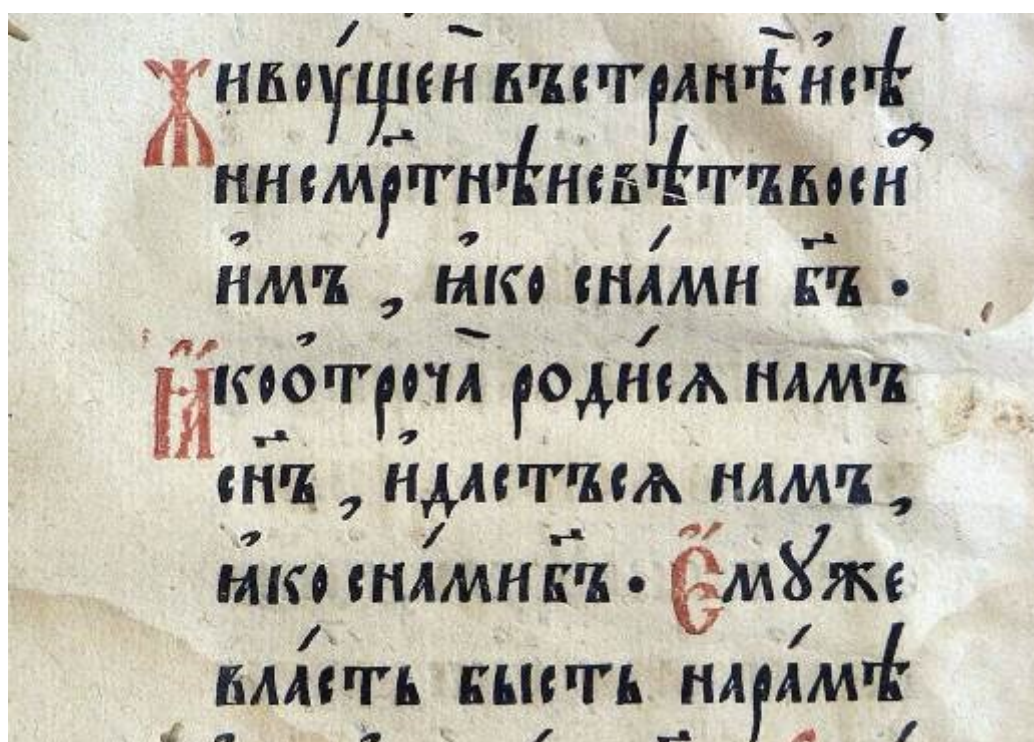 Живоу́щеи въстранѣ исѣ
ни смр҃тнѣи свѣтъ восиꙗ
и҆мъ , ꙗ҆ко сна́ми бг҃ъ .
Ꙗ҆коо҆троча̀ роди́сѧ намъ
сн҃ъ , и҆дастъсѧ намъ ,
ꙗ҆ко сна́ми бг҃ъ . Є҆мꙋ́же
вла́сть бысть нара́мѣ